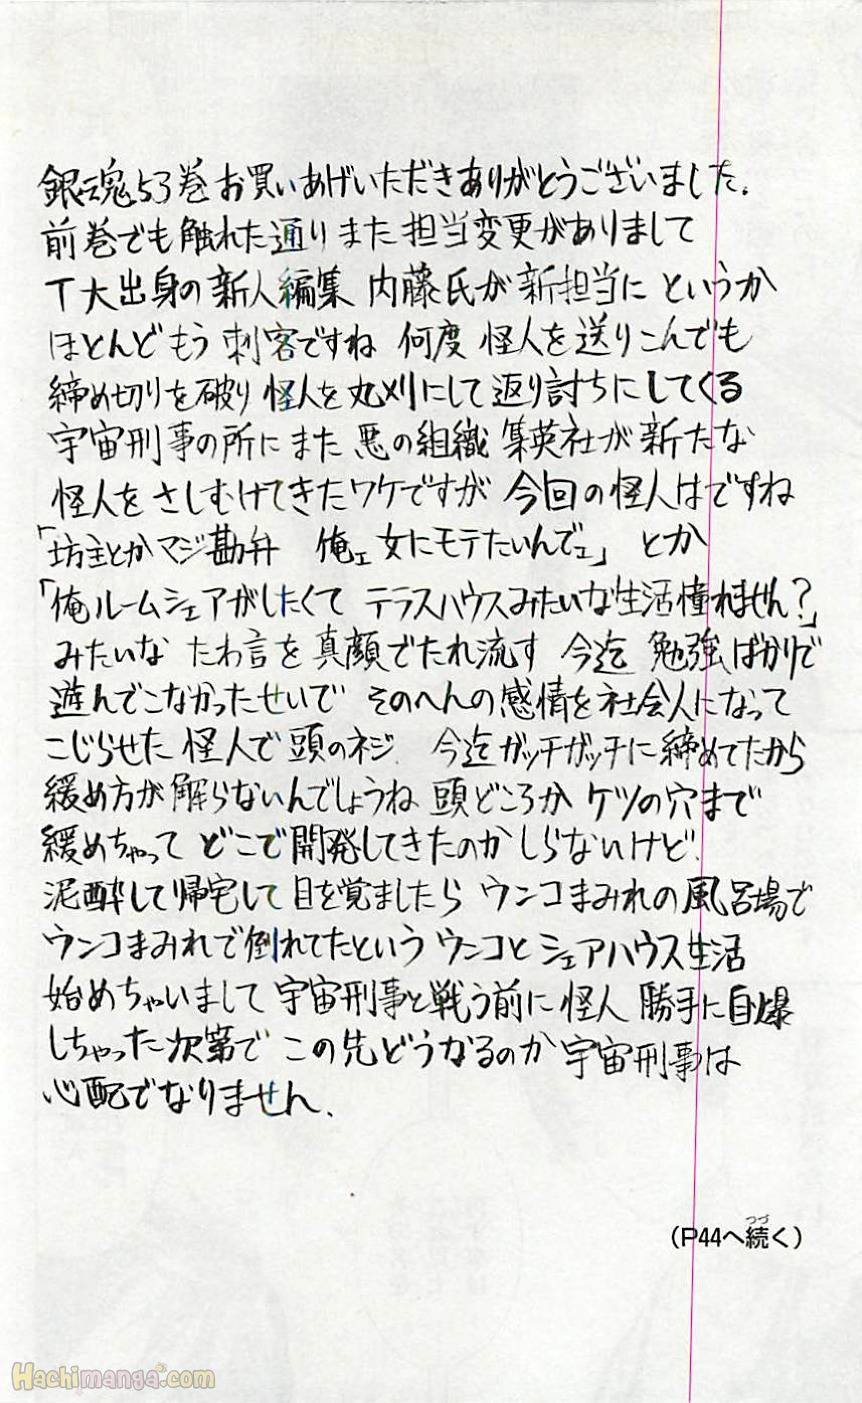 銀魂53巻お買いあげいただきありがとうございました.
前巻でも触れた通りまた担当変更がありまして
T大出身の新人編集 内藤氏が新担当に というか
ほとんどもう刺客ですね 何度 怪人を送りこんでも
締め切りを破り怪人を丸刈にして返り討ちにしてくる
宇宙刑事の所にまた悪の組織 集英社が新たな
怪人をさしむけてきたワケですが 今回の怪人はですね
「坊主とかマジ勘弁 俺ェ女にモテたいんでェ」とか
「俺ルームシェアがしたくて テラスハウスみたいな生活憧れません?」
みたいな たわ言を真顔でたれ流す 今迄 勉強ばかりで
遊んでこなかったせいで そのへんの感情を社会人になって
こじらせた怪人で頭のネジ. 今迄ガッチガッチに締めてたから
緩め方が解らないんでしょうね 頭どころか ケツの穴まで
緩めちゃって どこで開発してきたのかしらないけど.
泥酔して帰宅して目を覚ましたら ウンコまみれの風呂場で
ウンコまみれで倒れてたという ウンコとシェアハウス生活
始めちゃいまして 宇宙刑事と戦う前に怪人 勝手に自爆
しちゃった次第で この先どうなるのか宇宙刑事は
心配でなりません.
(P44へ続く)
つづ
Hachimanga.com